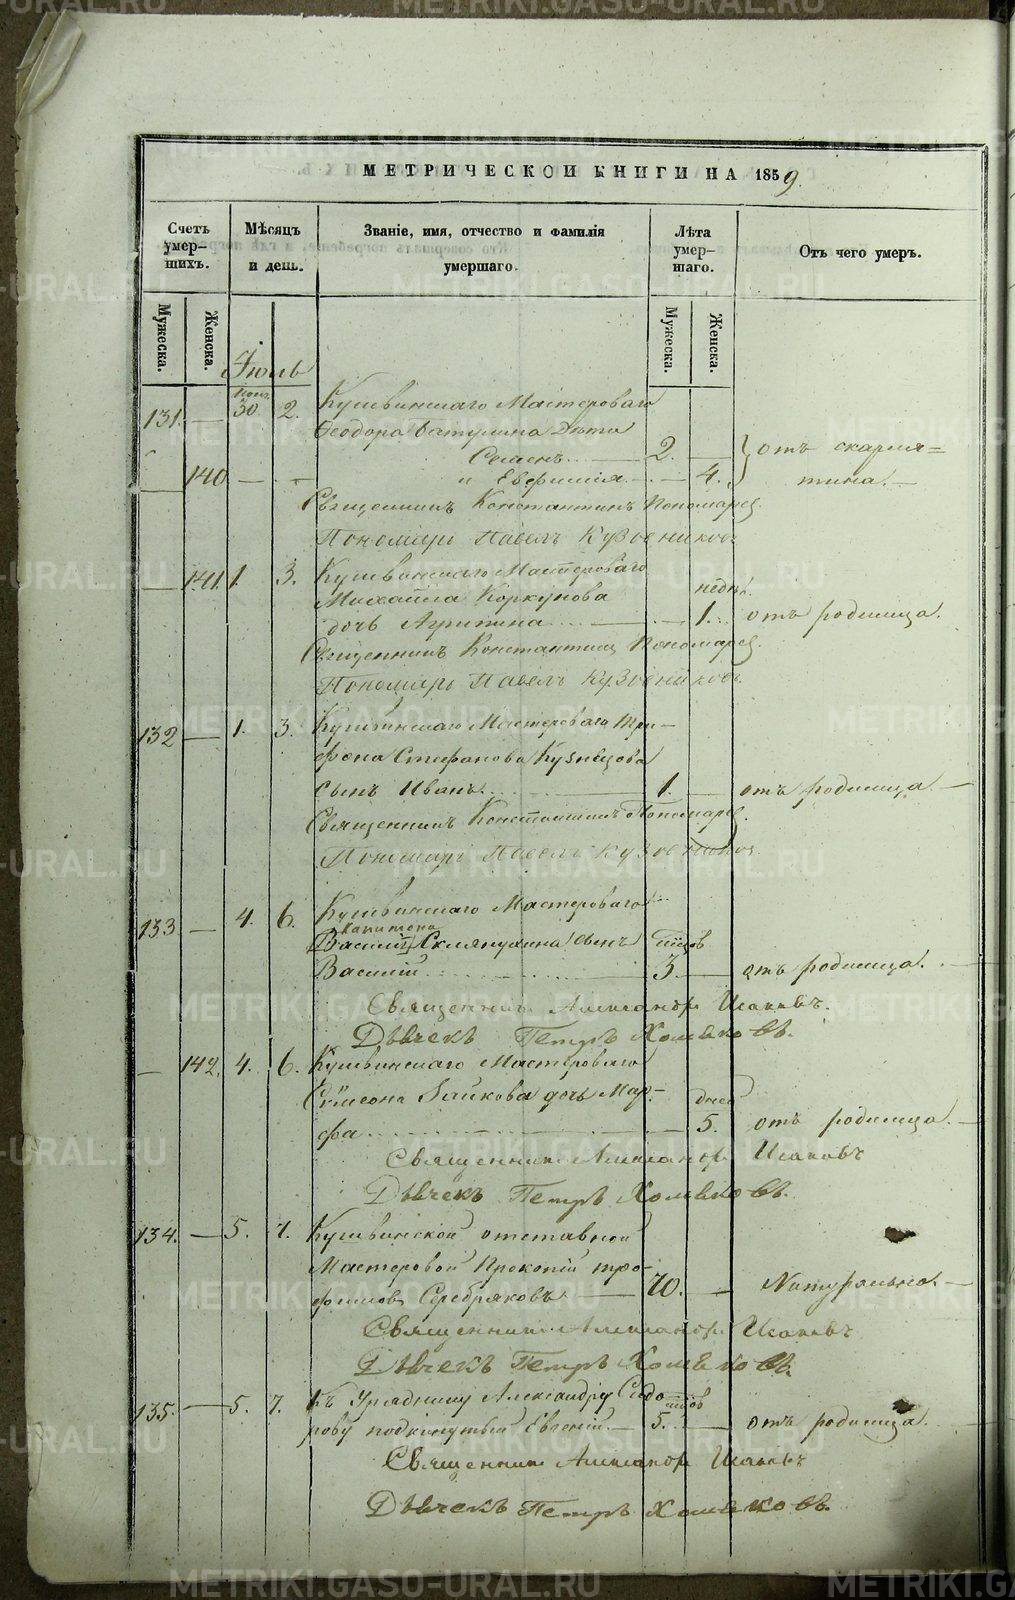 МЕТРИЧЕСКОЙ КНИГИ НА 1859.
Счетъ умер-шихъ.
Мѣсяцъ и день.
Званіе, имя, отчество и фамилія умершаго.
Лѣта умер-шаго.
Отъ чего умеръ.
Мужеска.
Женска.
Мужеска.
Женска.
Іюль
131. — 30. 2. Кушвинскаго Мастероваго
Ѳеодора Ватулина дѣти
2. — отъ скарла=
140 — и Евфимія — 4. тина. —
Священникъ Константинъ Пономарев
Пономарь Павелъ Кузовниковъ
— 141. 1. 3. Кушвинскаго Мастероваго
Михаила Коркунова недѣл.
дочь Агрипина — 1. отъ родимца.
Священникъ Константинъ Пономарев
Пономарь Павелъ Кузовниковъ
132 — 1. 3. Кушвинскаго Мастероваго Три-
фона Стефанова Кузнецова
сынъ Иванъ — 1. — отъ родимца. —
Священникъ Константинъ Пономарев
Пономарь Павелъ Кузовников
133 — 4. 6. Кушвинскаго Мастероваго
Василій сынъ мцов
Василій 3. — отъ родимца. —
Священникъ Александр Исаковъ.
Дьячекъ Петръ Хомяковъ.
— 142. 4. 6. Кушвинскаго Мастероваго
Симеона Зайкова дочь Мар- дней
фа — 5. отъ родимца. —
Священникъ Александр Исаковъ
Дьячекъ Петръ Хомяковъ.
134. — 5. 7. Кушвинской отставной
Мастеровой Прокопій Тро-
фимовъ Серебряковъ — 70. — Натурально. —
Священникъ Александр Исаковъ
Дьячекъ Петръ Хомяковъ.
135. — 5. 7. Къ Уряднику Александру Сидо- мцов
рову подкинутый Евгений. — 5. — отъ родимца.
Священникъ Александр Исаковъ
Дьячекъ Петръ Хомяковъ.
METRIKI.GASO-URAL.RU